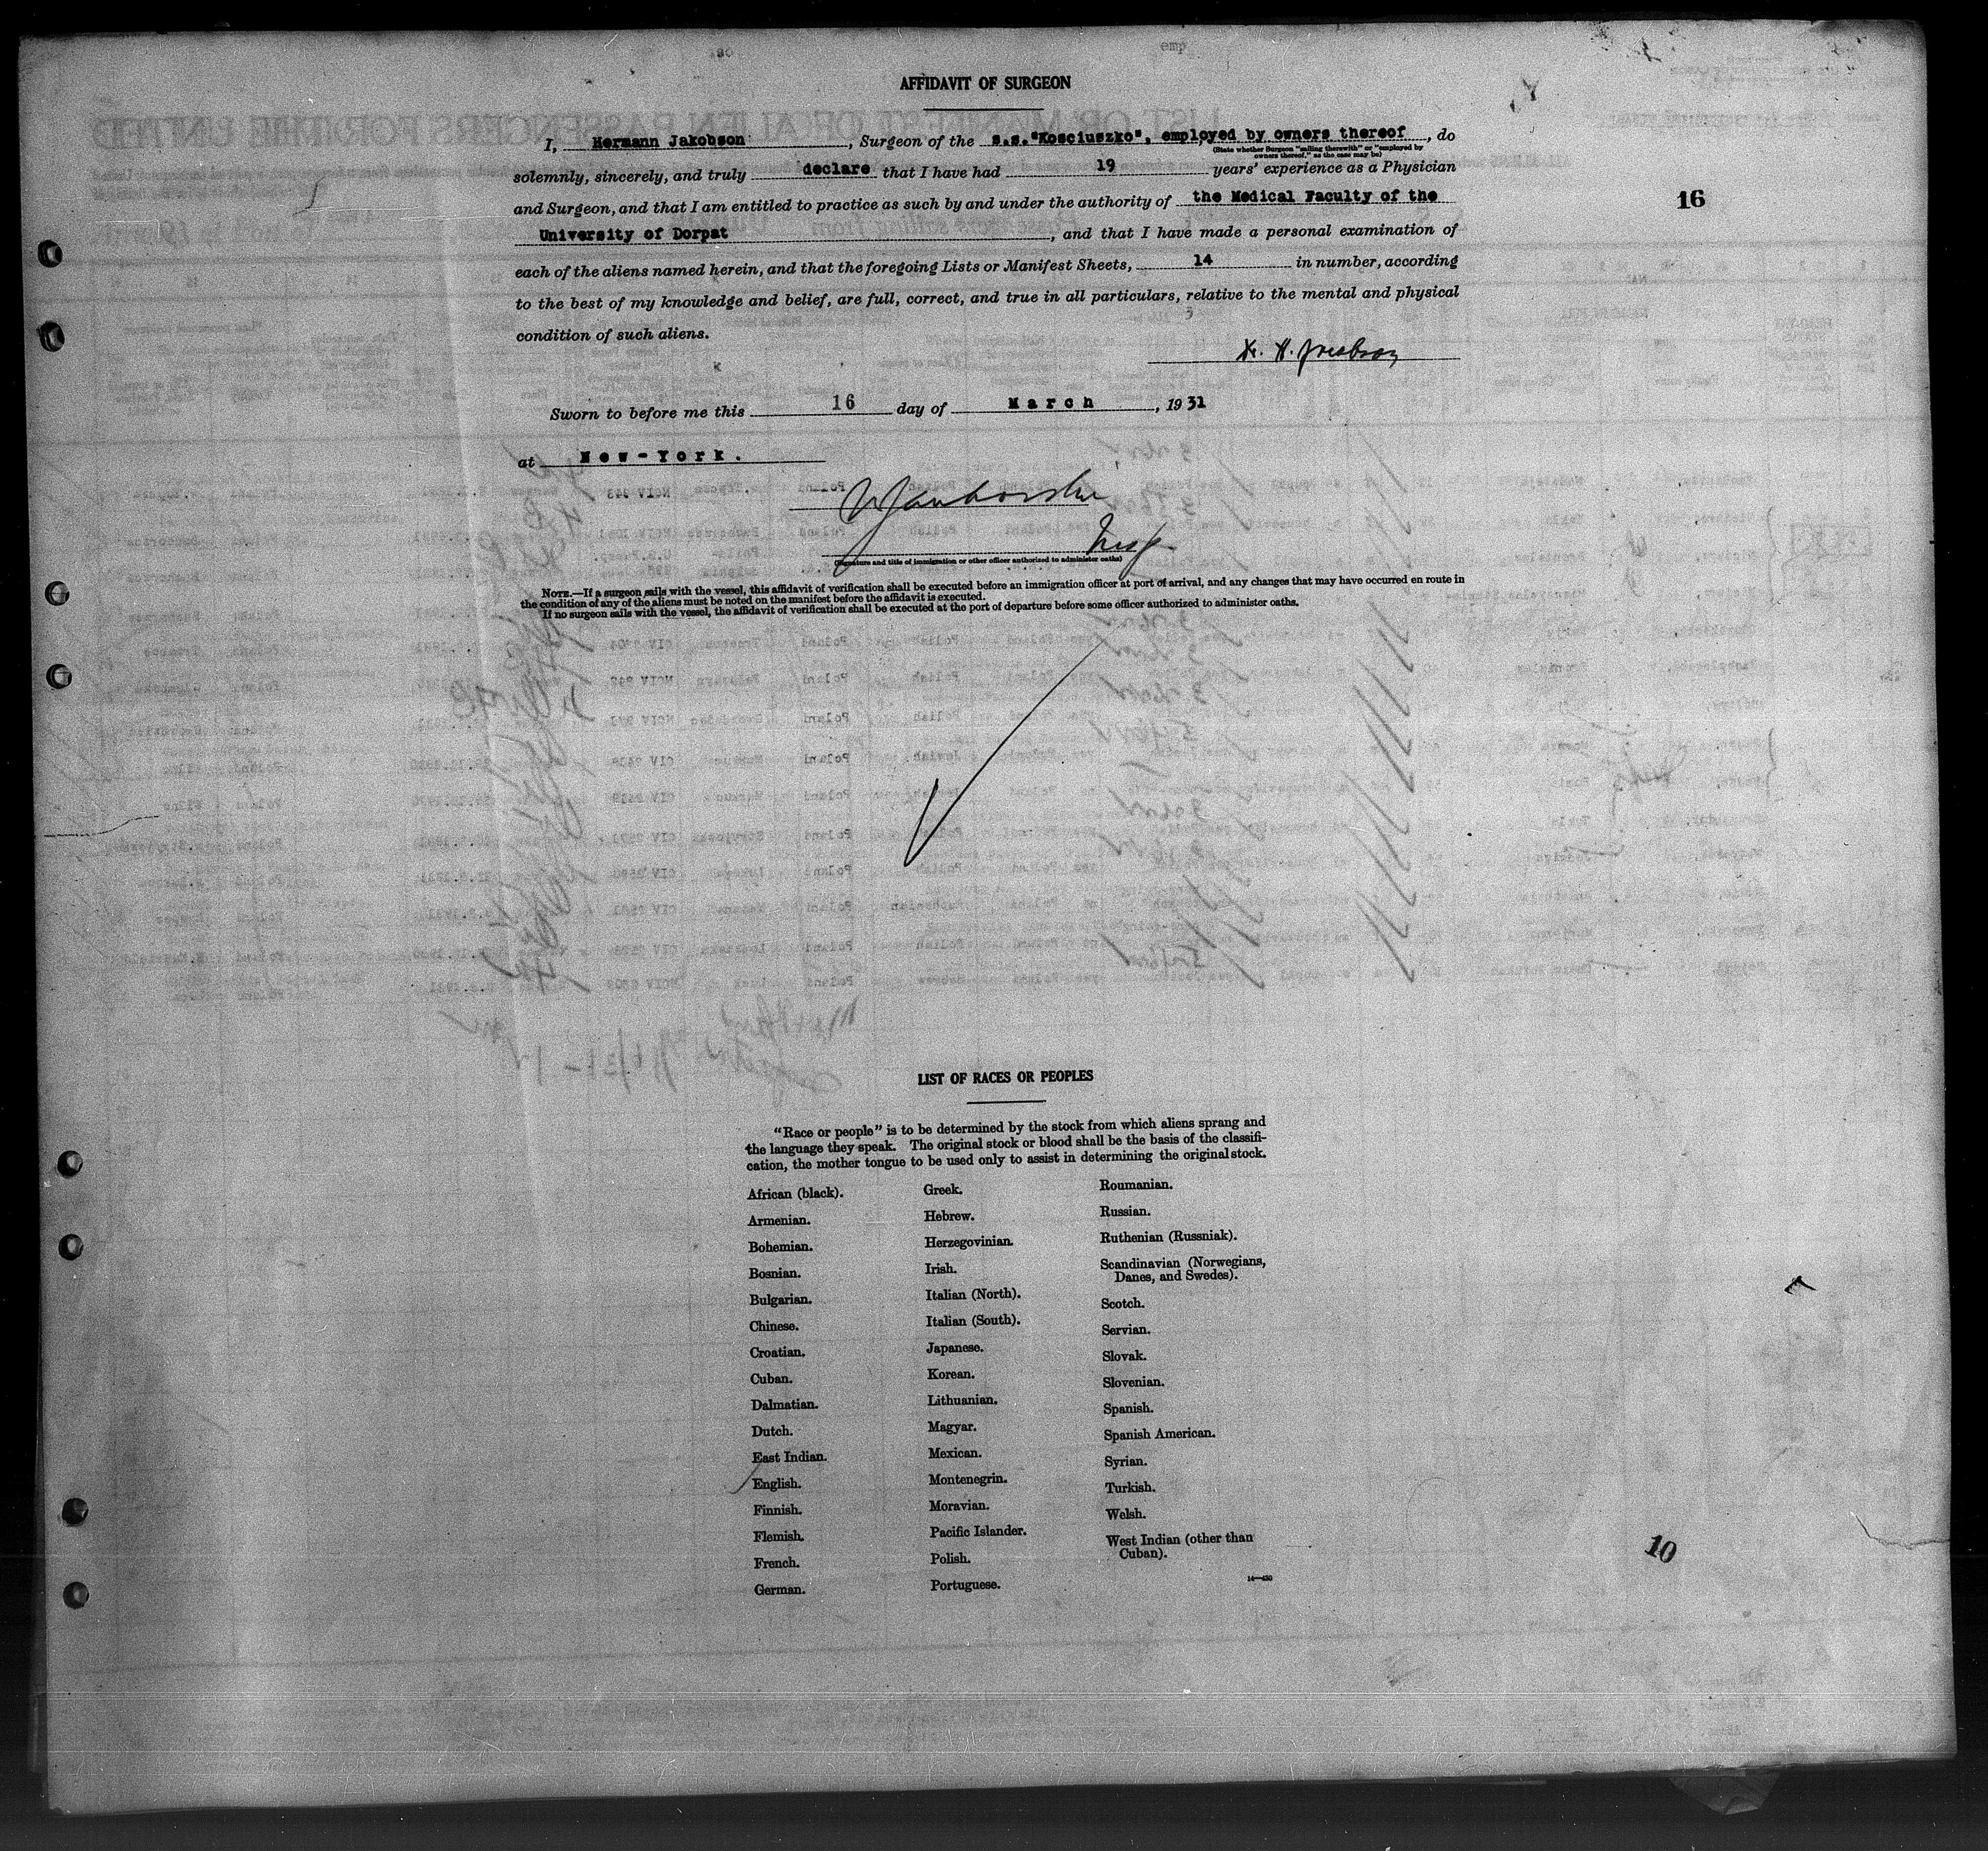 emp
AFFIDAVIT OF SURGEON
I, Hermann Jakobson, Surgeon of the s.s."Kosciuszko", employed by owners thereof, do
(State whether Surgeon "sailing therewith" or "employed by
owners thereof," as the case may be)
solemnly, sincerely, and truly declare that I have had 19 years' experience as a Physician
and Surgeon, and that I am entitled to practice as such by and under the authority of the Medical Faculty of the
University of Dorpat, and that I have made a personal examination of
16
each of the aliens named herein, and that the foregoing Lists or Manifest Sheets, 14 in number, according
to the best of my knowledge and belief, are full, correct, and true in all particulars, relative to the mental and physical
condition of such aliens.
Dr. H. Jacobson
Sworn to before me this 16 day of March, 1931
at New-York.
Insp
(Signature and title of immigration or other officer authorized to administer oaths)
NOTE.—If a surgeon sails with the vessel, this affidavit of verification shall be executed before an immigration officer at port of arrival, and any changes that may have occurred en route in
the condition of any of the aliens must be noted on the manifest before the affidavit is executed.
If no surgeon sails with the vessel, the affidavit of verification shall be executed at the port of departure before some officer authorized to administer oaths.
LIST OF RACES OR PEOPLES
"Race or people" is to be determined by the stock from which aliens sprang and
the language they speak. The original stock or blood shall be the basis of the classifi-
cation, the mother tongue to be used only to assist in determining the original stock.
African (black).
Armenian.
Bohemian.
Bosnian.
Bulgarian.
Chinese.
Croatian.
Cuban.
Dalmatian.
Dutch.
East Indian.
English.
Finnish.
Flemish.
French.
German.
Greek.
Hebrew.
Herzegovinian.
Irish.
Italian (North).
Italian (South).
Japanese.
Korean.
Lithuanian.
Magyar.
Mexican.
Montenegrin.
Moravian.
Pacific Islander.
Polish.
Portuguese.
Roumanian.
Russian.
Ruthenian (Russniak).
Scandinavian (Norwegians,
Danes, and Swedes).
Scotch.
Servian.
Slovak.
Slovenian.
Spanish.
Spanish American.
Syrian.
Turkish.
Welsh.
West Indian (other than
Cuban).
14—430
10